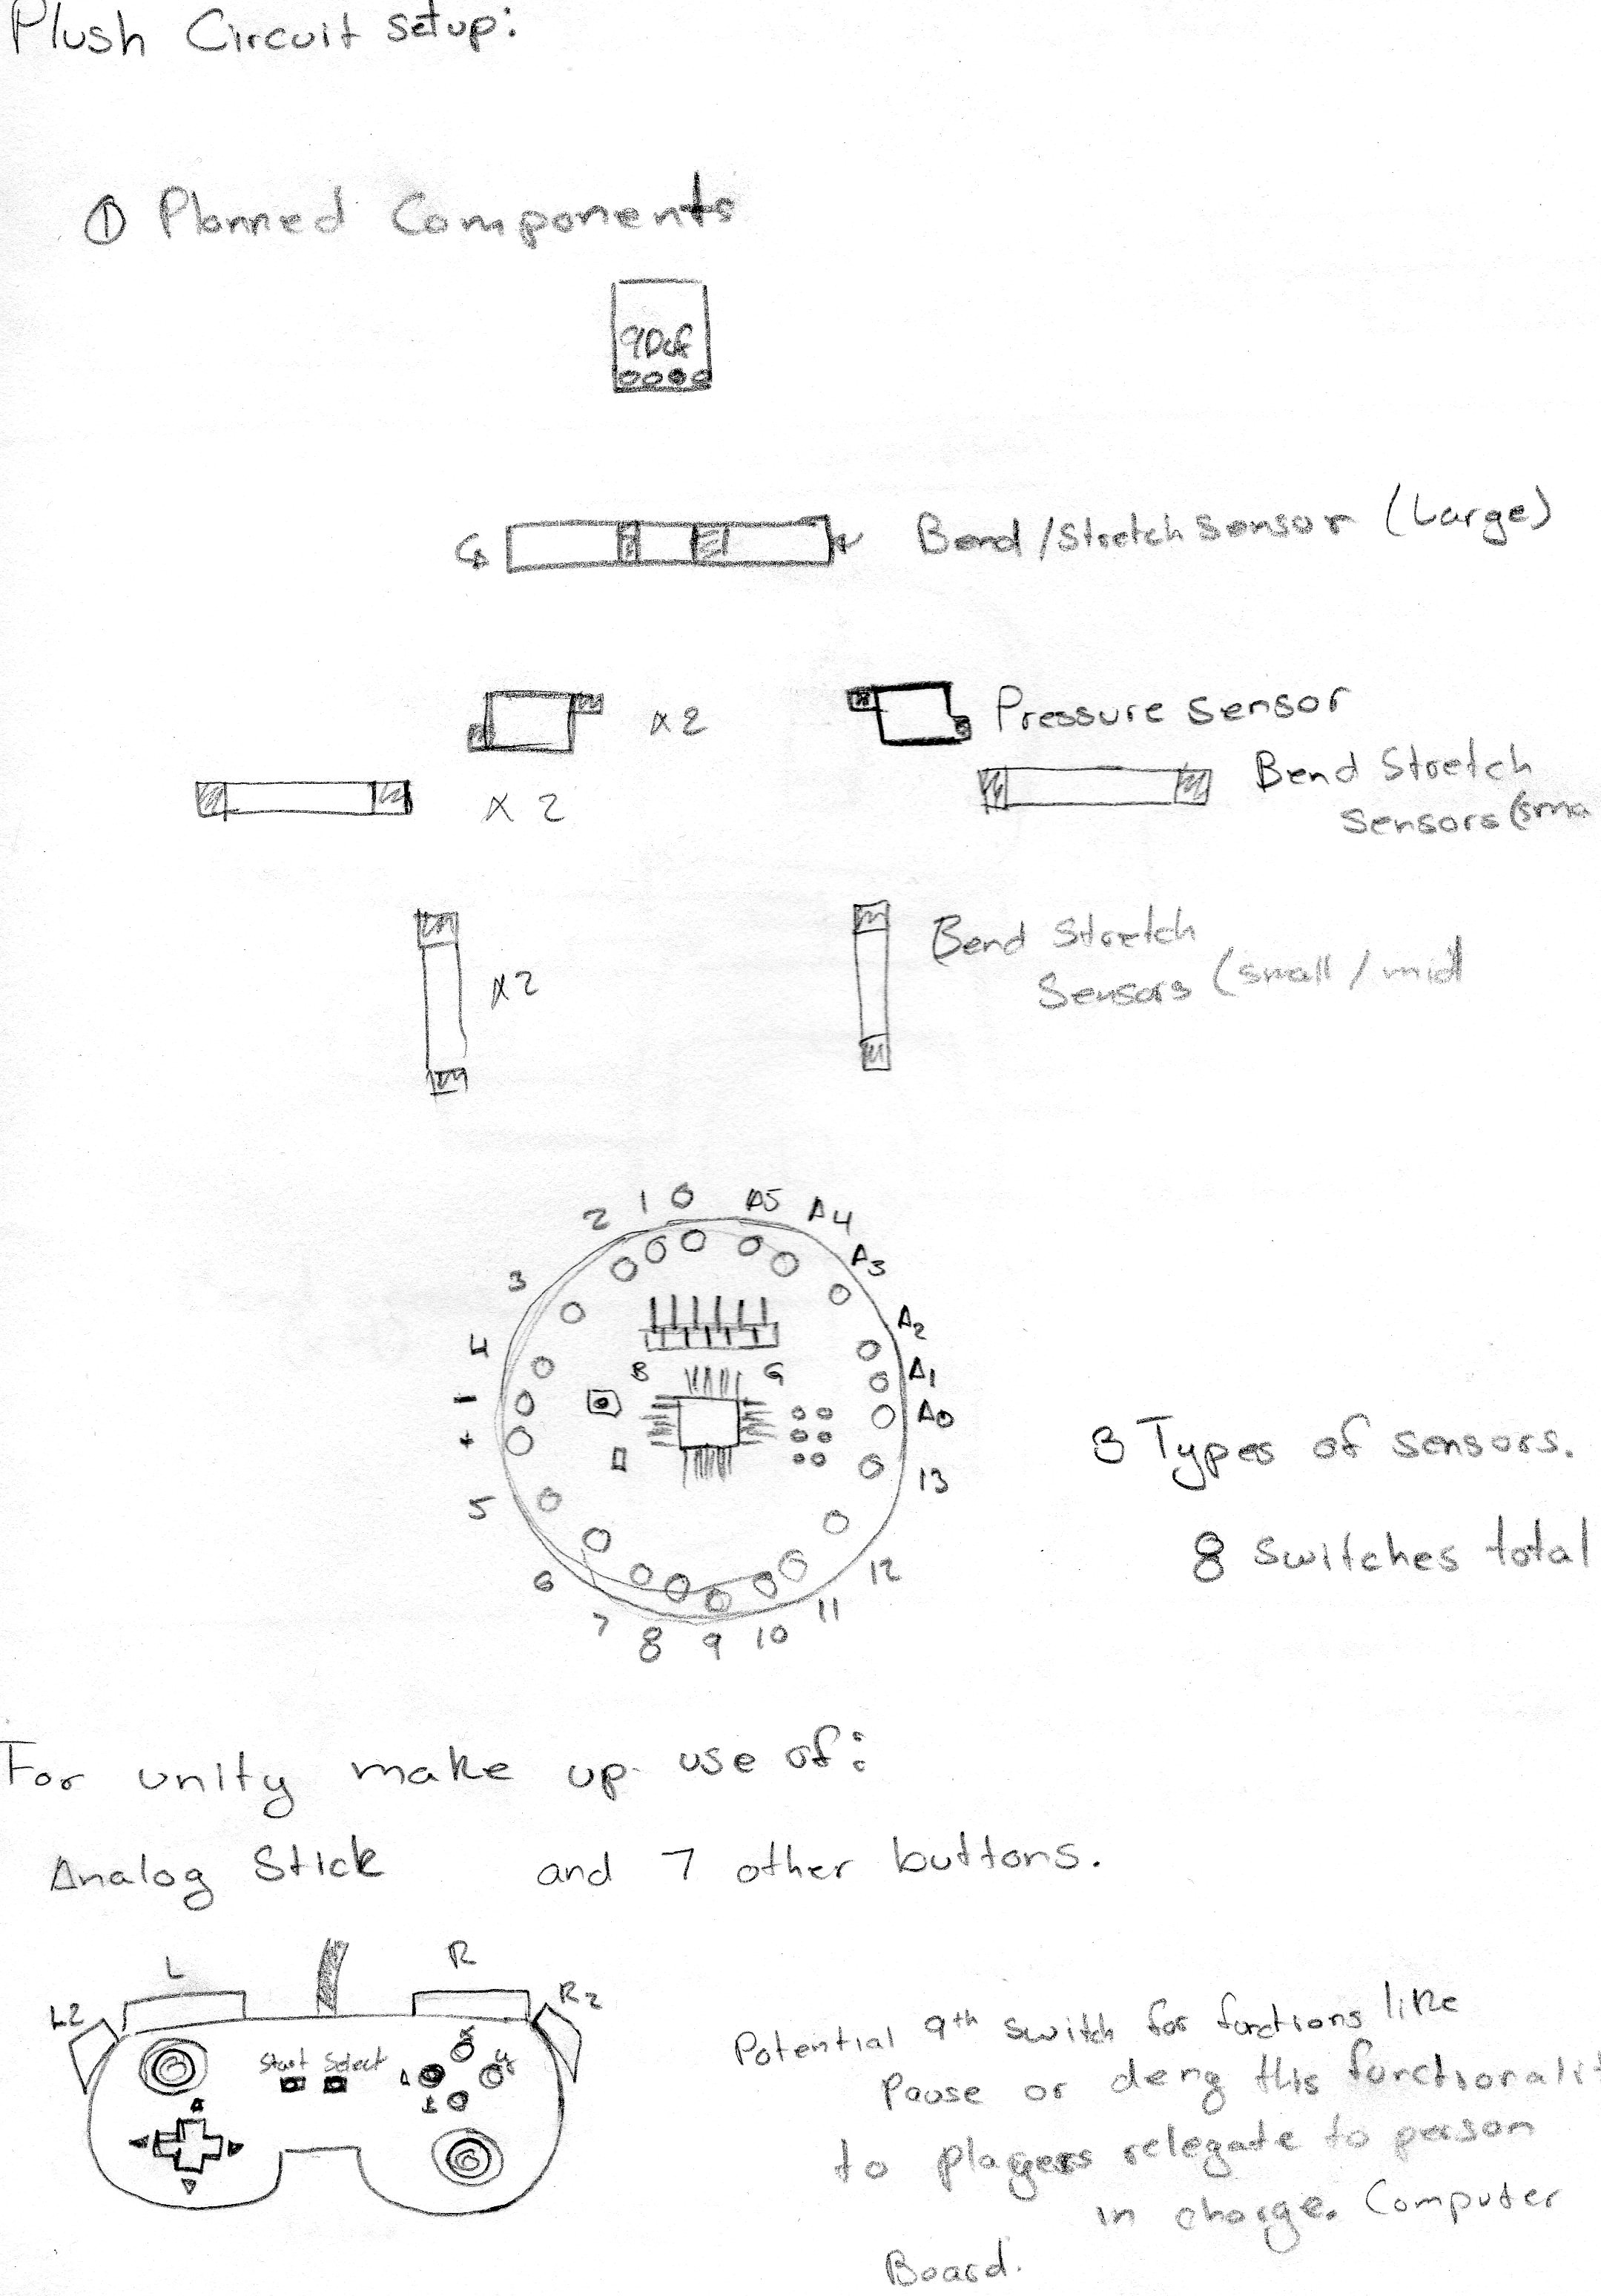 Plush Circuit setup:
① Planned Components
9Dof
Bend/Stretch sensor (Large)
x2
Pressure sensor
x 2
Bend Stretch
Sensors (sma
x2
Bend Stretch
Sensors (small / mid
2 1 0 A5 A4
3 A3
4 A2
B G A1
- A0
+
5 13
6 12
7 8 9 10 11
3 Types of sensors.
8 switches total
For unity make up use of:
Analog Stick and 7 other buttons.
L R
L2 R2
Start Select
X
Y
A
B
Potential 9th switch for functions like
Pause or deny this functionalit
to players relegate to person
in charge. Computer
Board.